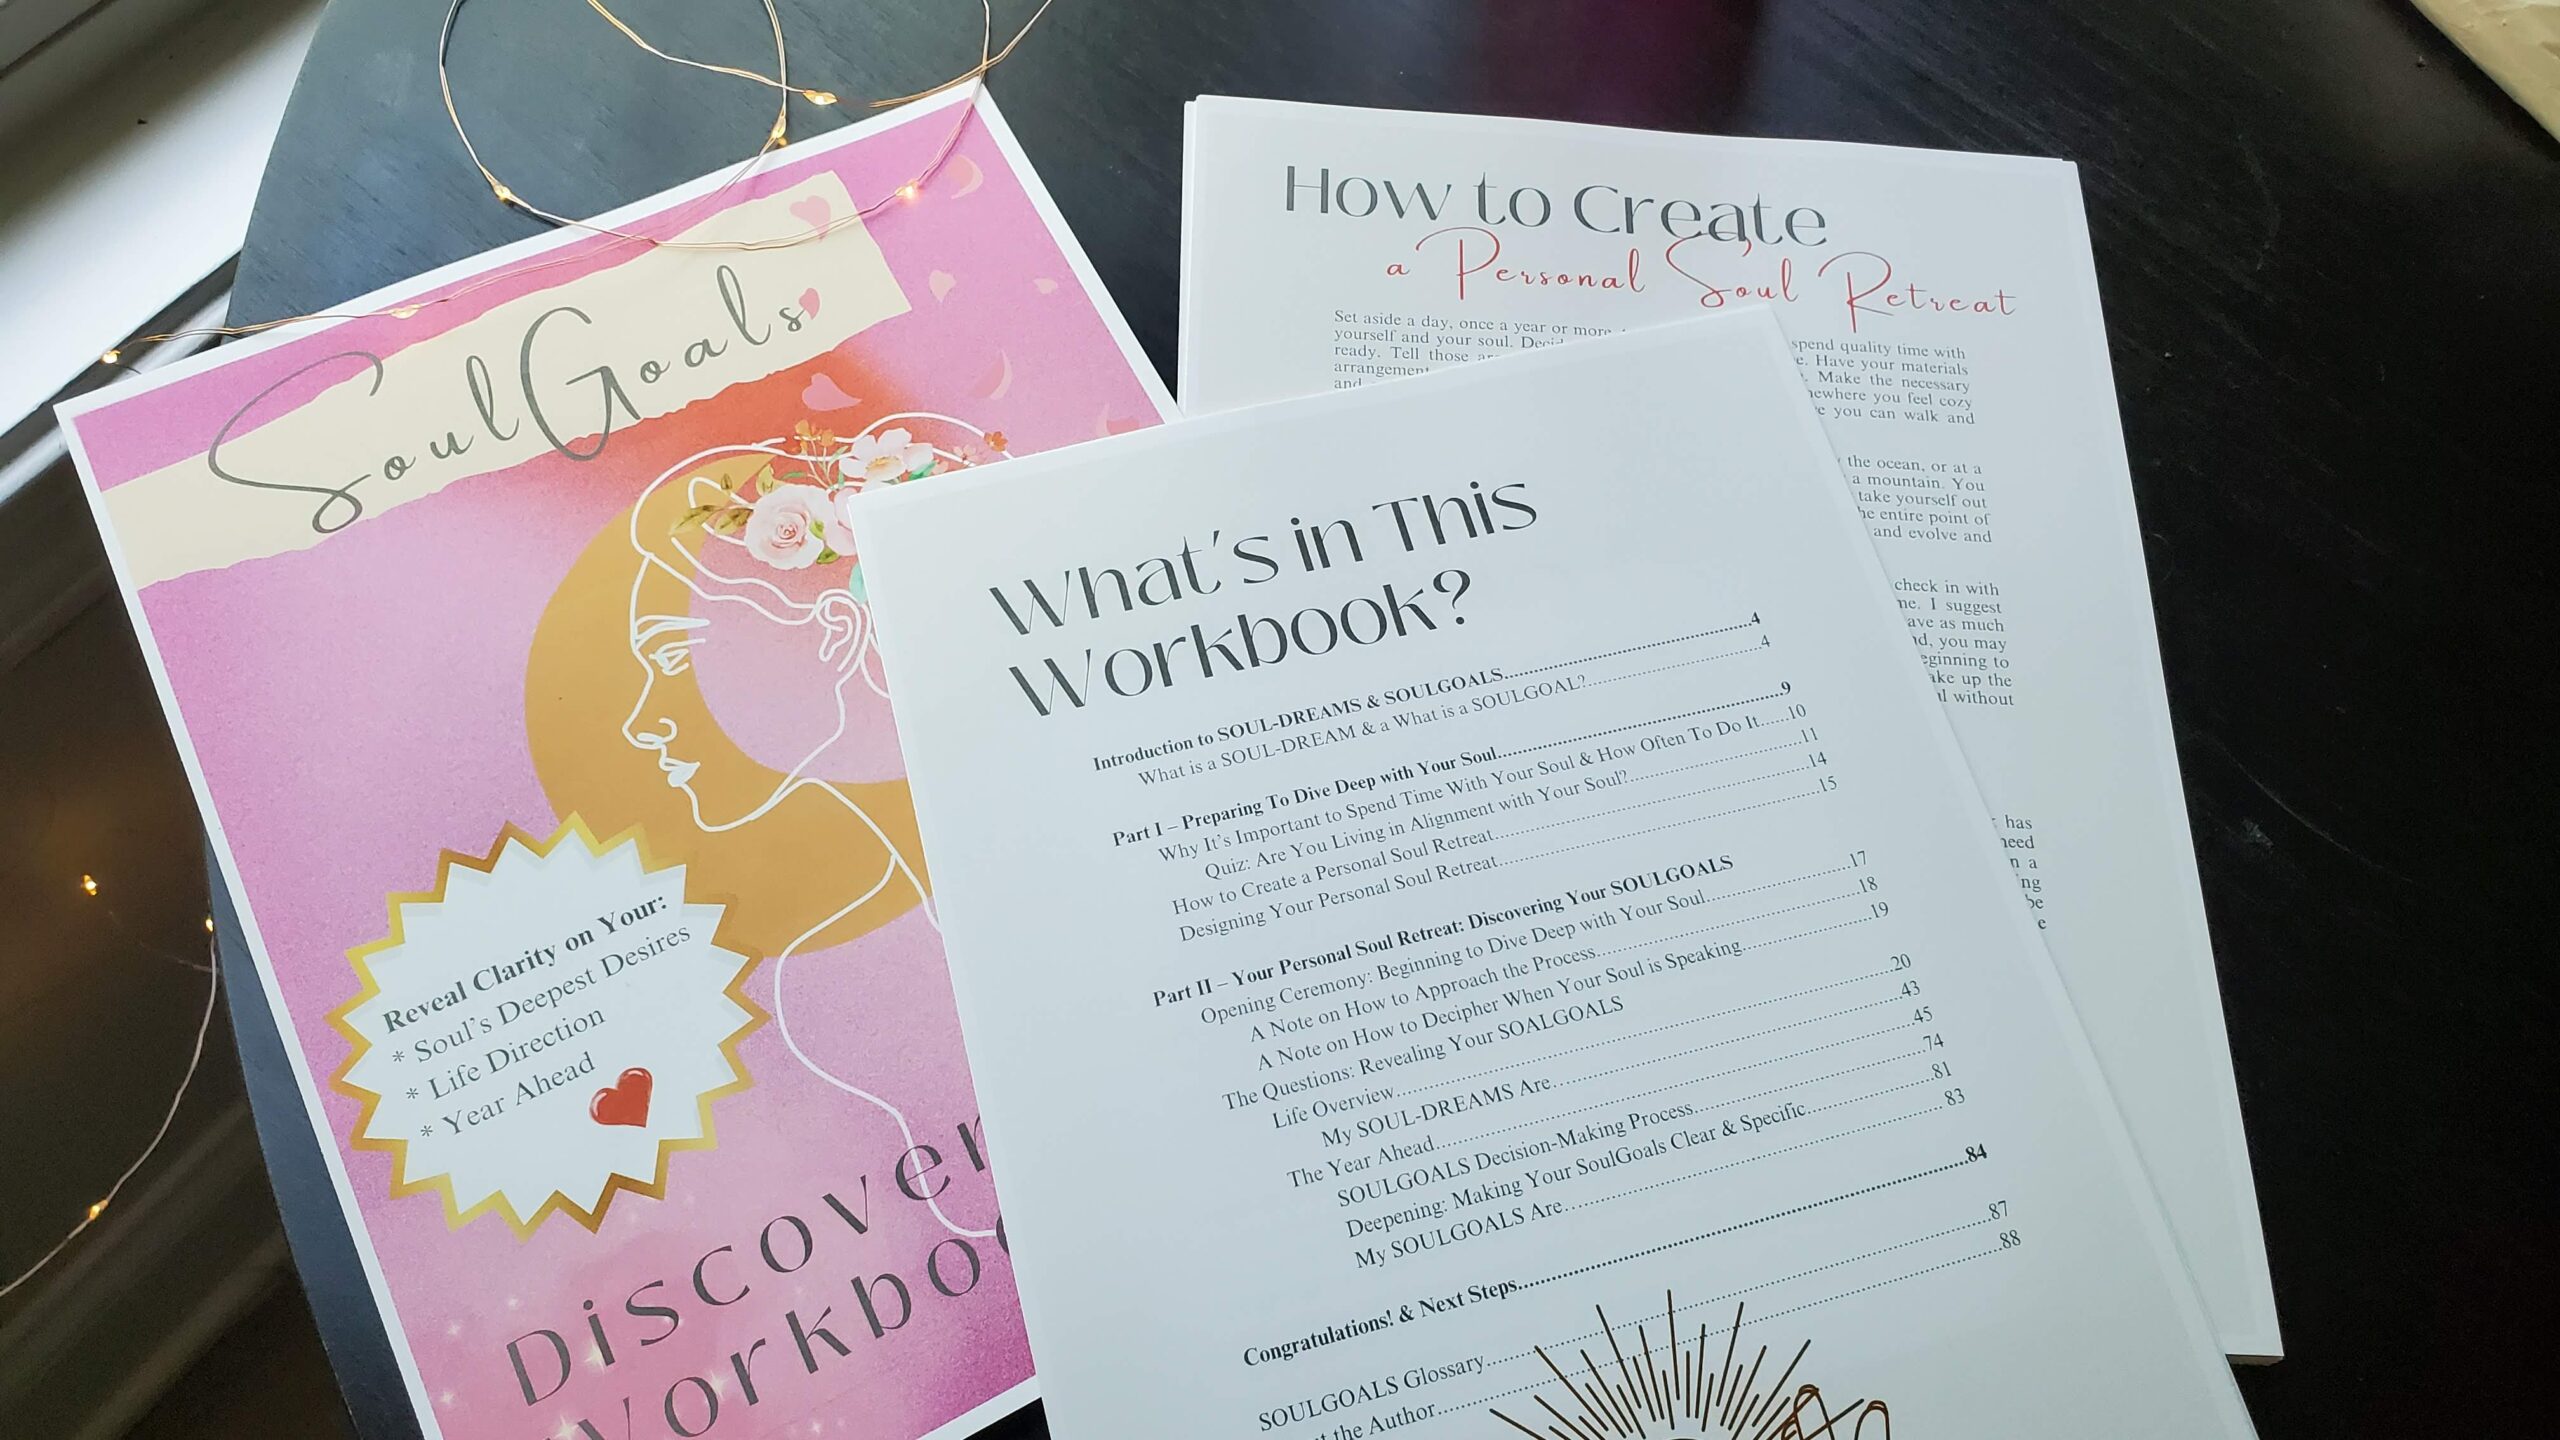 SoulGoals
Reveal Clarity on Your:
* Soul's Deepest Desires
* Life Direction
* Year Ahead
Discover
Workbo
How to Create
a Personal Soul Retreat
Set aside a day, once a year or more
spend quality time with
yourself and your soul.
Have your materials
ready. Tell those
Make the necessary
arrangement
you feel cozy
and
you can walk and
the ocean, or at a
a mountain. You
take yourself out
entire point of
and evolve and
check in with
I suggest
as much
you may
to
up the
without
has
a
What's in This
Workbook?
Introduction to SOUL-DREAMS & SOULGOALS....4
What is a SOUL-DREAM & a What is a SOULGOAL?....4
Part I – Preparing To Dive Deep with Your Soul....9
Why It's Important to Spend Time With Your Soul & How Often To Do It....10
Quiz: Are You Living in Alignment with Your Soul?....11
How to Create a Personal Soul Retreat....14
Designing Your Personal Soul Retreat....15
Part II – Your Personal Soul Retreat: Discovering Your SOULGOALS
Opening Ceremony: Beginning to Dive Deep with Your Soul....17
A Note on How to Approach the Process....18
A Note on How to Decipher When Your Soul is Speaking....19
The Questions: Revealing Your SOALGOALS
Life Overview....20
My SOUL-DREAMS Are....43
The Year Ahead....45
SOULGOALS Decision-Making Process....74
Deepening: Making Your SoulGoals Clear & Specific....81
My SOULGOALS Are....83
Congratulations! & Next Steps....84
SOULGOALS Glossary....87
the Author....88